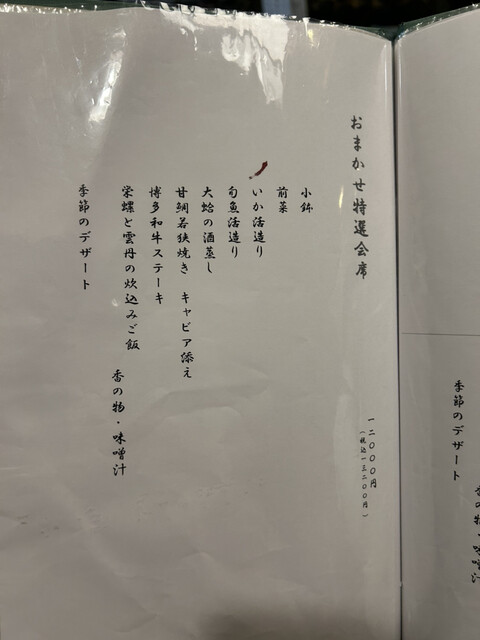 季節のデザート
香の物・味噌汁
おまかせ特選会席
一二〇〇〇円
(税込一三二〇〇円)
小鉢
前菜
いか活造り
旬魚活造り
大蛤の酒蒸し
甘鯛若狭焼き キャビア添え
博多和牛ステーキ
栄螺と雲丹の炊込みご飯
香の物・味噌汁
季節のデザート